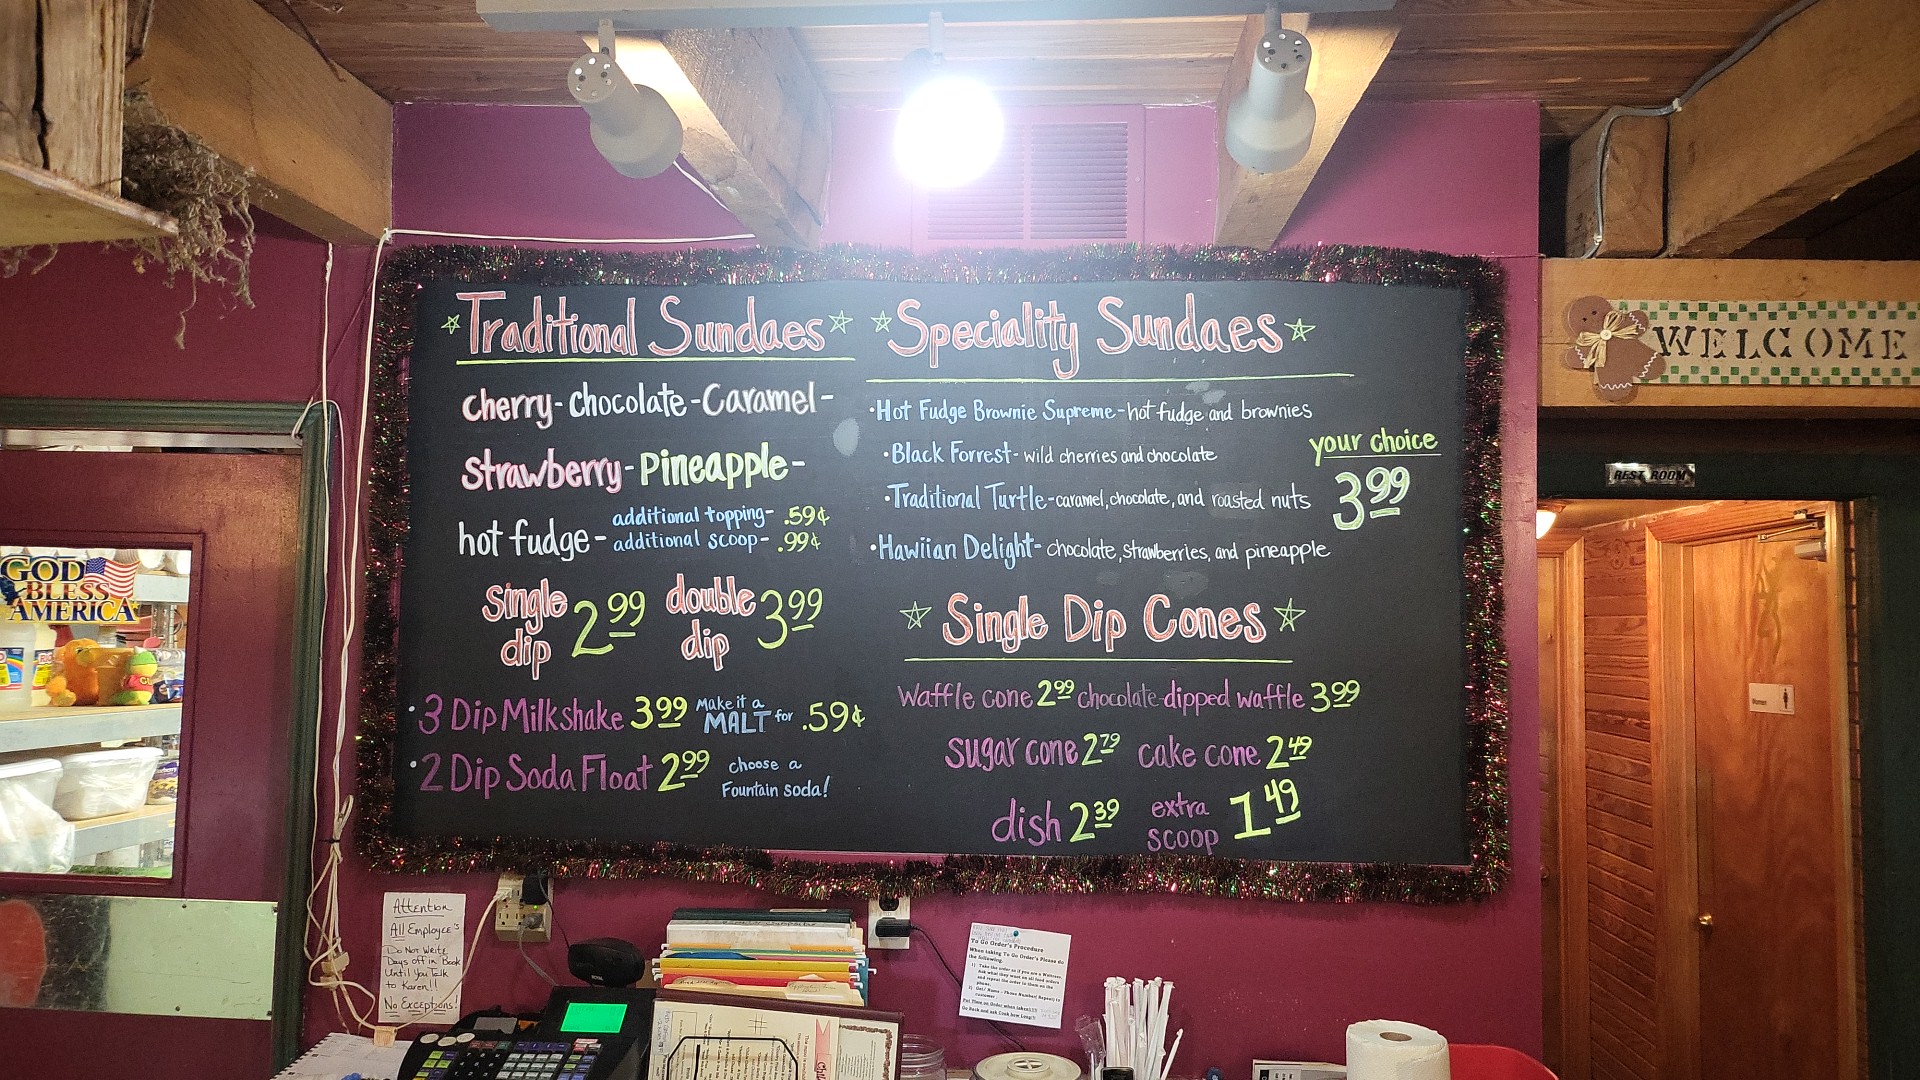 Traditional Sundaes
cherry-chocolate-Caramel-
strawberry-Pineapple-
hot fudge-
additional topping- .59¢
additional scoop- .99¢
single dip 2.99
double dip 3.99
·3 Dip Milkshake 3.99 Make it a MALT for .59¢
·2 Dip Soda Float 2.99 choose a Fountain soda!
Speciality Sundaes
·Hot Fudge Brownie Supreme-hot fudge and brownies
·Black Forrest-wild cherries and chocolate
·Traditional Turtle-caramel, chocolate, and roasted nuts
·Hawiian Delight-chocolate, strawberries, and pineapple
your choice
3.99
Single Dip Cones
Waffle cone 2.99 chocolate-dipped waffle 3.99
sugar cone 2.79 cake cone 2.49
dish 2.39 extra scoop 1.49
WELCOME
REST ROOM
Women
GOD BLESS AMERICA
Attention
All Employee's
Do Not Write
Days off in Book
Until You Talk
to Karen!!
No Exceptions!
To Go Order's Procedure
When taking To Go Order's Please do
the following.